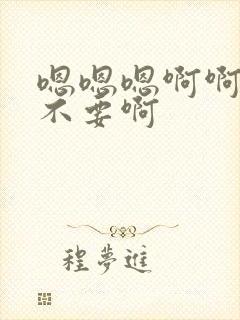 嗯嗯嗯啊啊
不要啊
程夢進